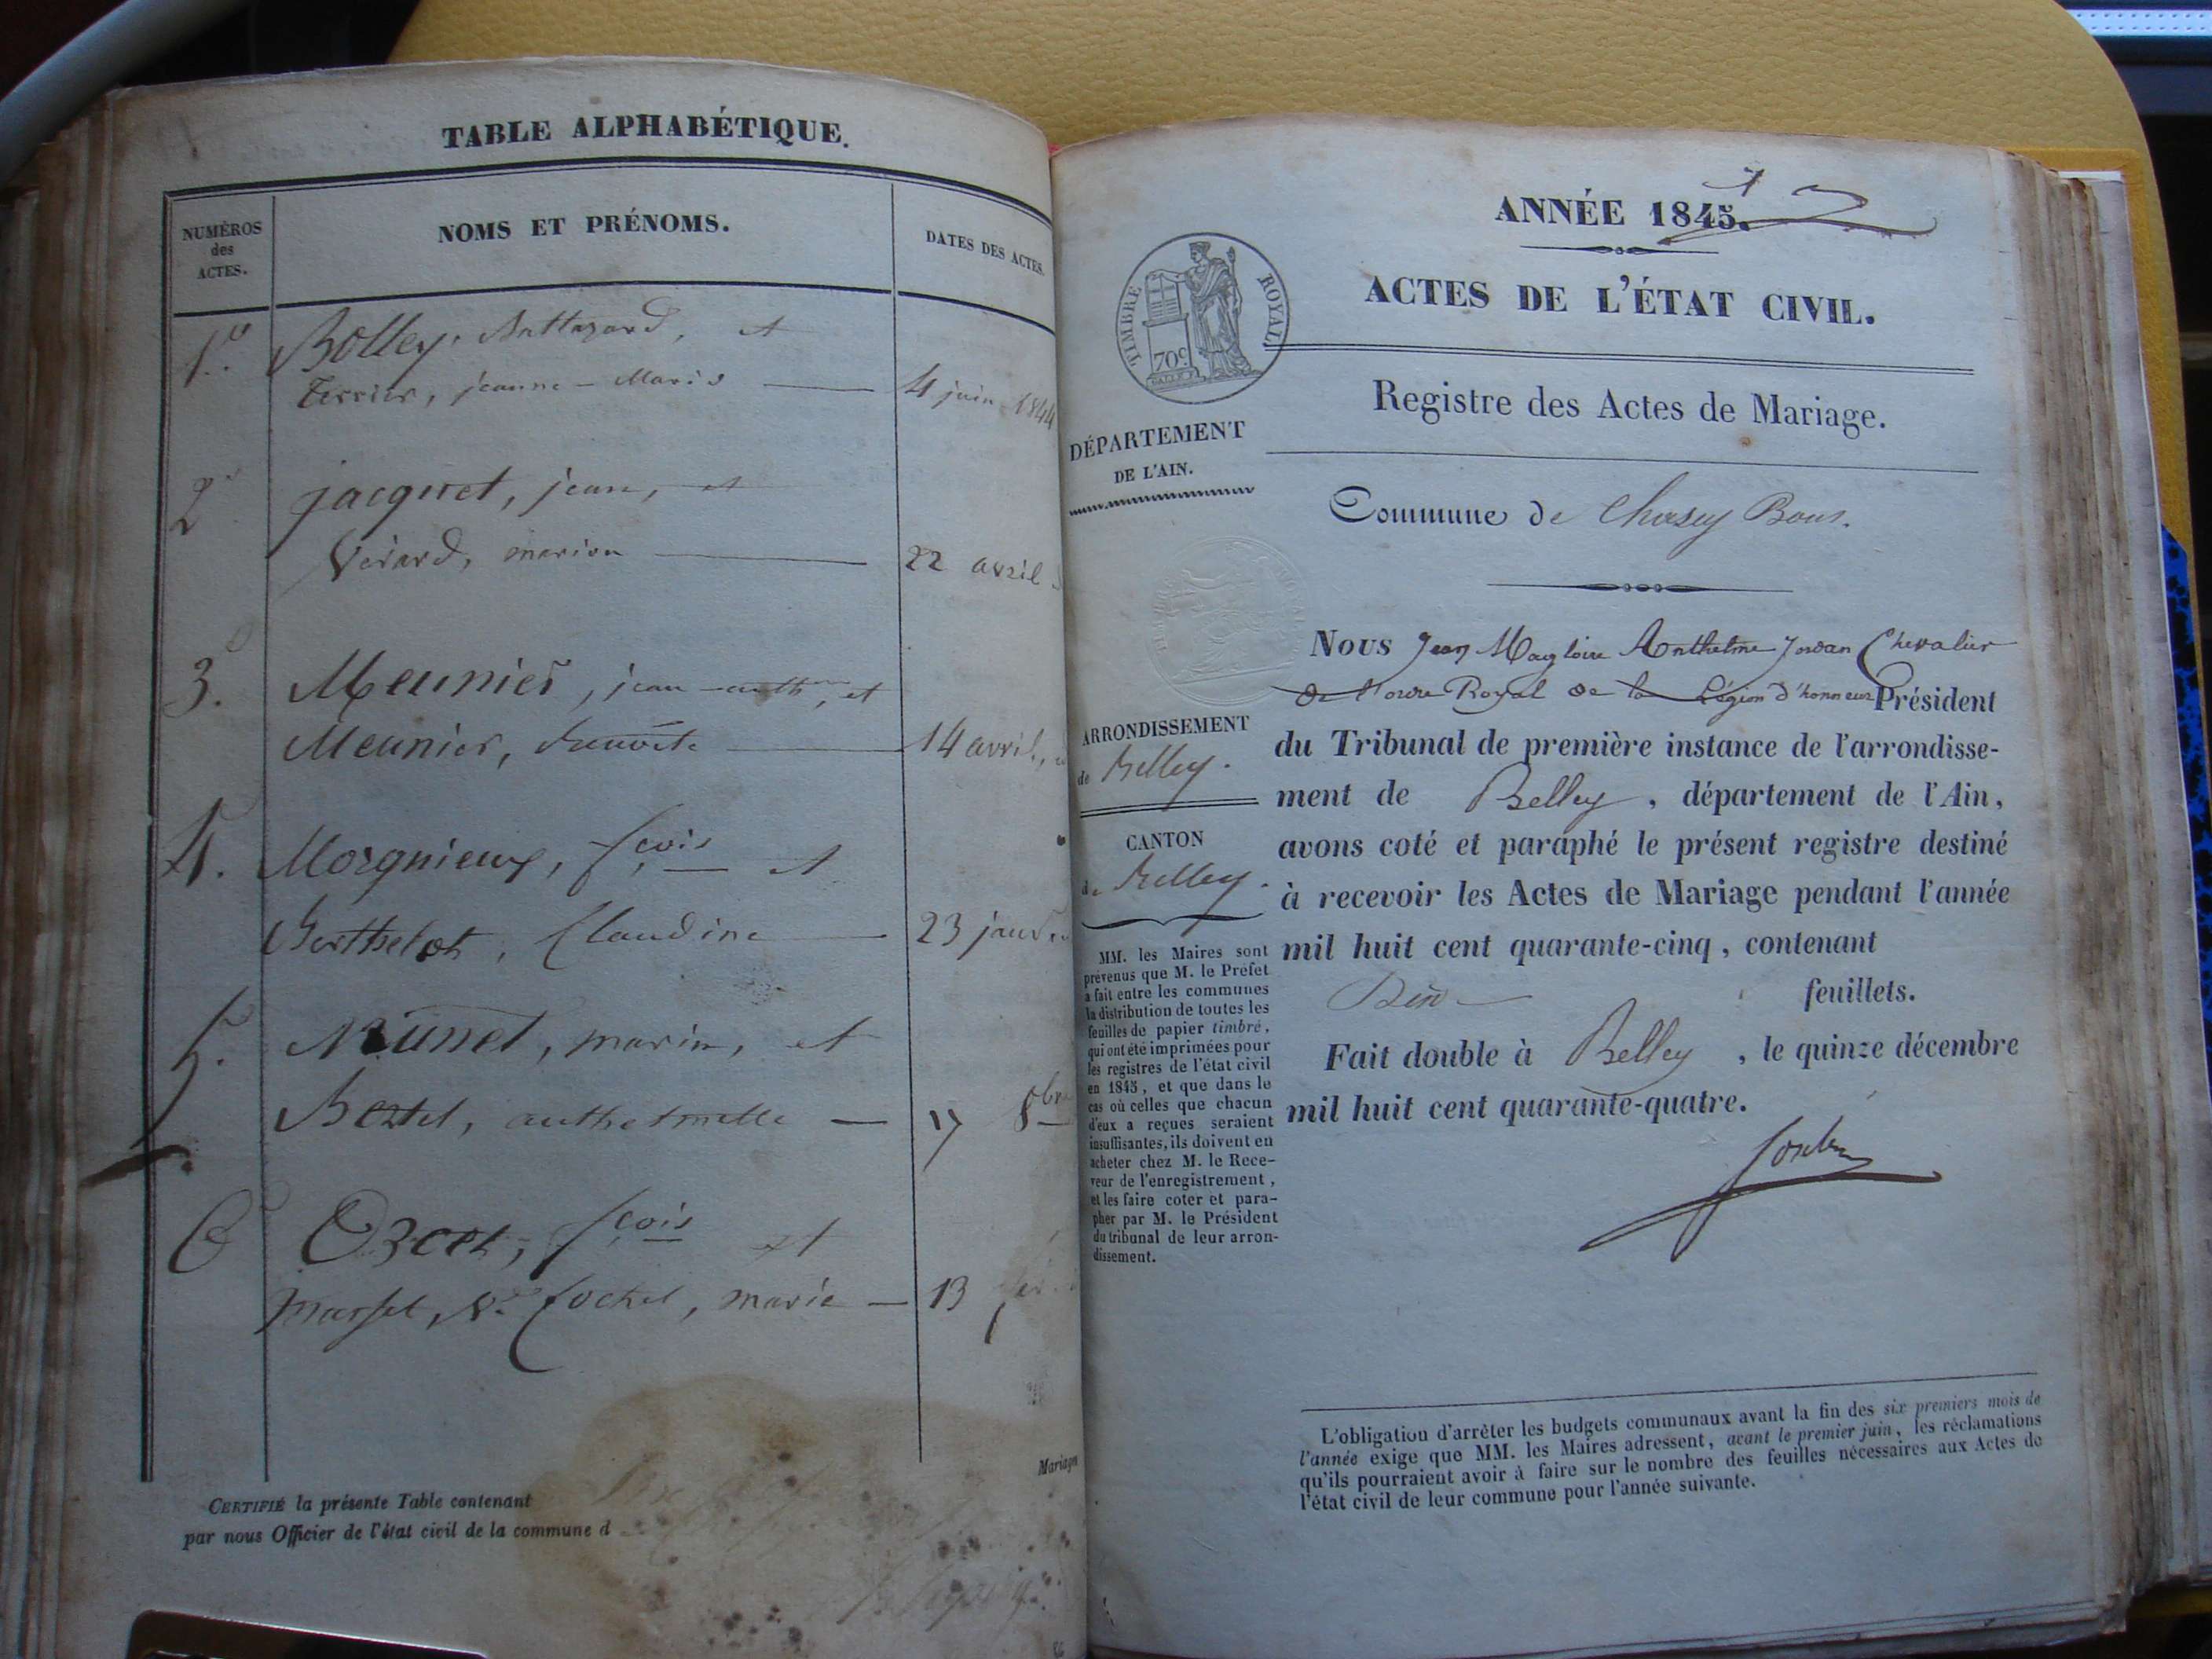 TABLE ALPHABÉTIQUE.
NUMÉROS
des
ACTES.
NOMS ET PRÉNOMS.
DATES DES ACTES.
1.º Bolley, Balthazard, et
terrier, jeanne-Marie 4 juin 1844
2 jacquet, jean, et
Vérard, marion 22 avril
3. Meunier, jean-anth, et
Meunier, 14 avril,
4. Morgnieux, fçois et
Berthelot, Claudine 23 janv
5. marin, et
Bertet, 17 8bre
6 fçois et
ve, marie 13
Mariages
CERTIFIÉ la présente Table contenant
par nous Officier de l'état civil de la commune d
ANNÉE 1845.
TIMBRE ROYAL
70c
ACTES DE L'ÉTAT CIVIL.
Registre des Actes de Mariage.
DÉPARTEMENT
DE L'AIN.
Commune de Chasey Bons.
Nous Jean Magloire Anthelme Jordan Chevalier
de l'ordre Royal de la Légion d'honneur Président
du Tribunal de première instance de l'arrondisse-
ment de Belley, département de l'Ain,
avons coté et paraphé le présent registre destiné
à recevoir les Actes de Mariage pendant l'année
mil huit cent quarante-cinq, contenant
feuillets.
Fait double à Belley, le quinze décembre
mil huit cent quarante-quatre.
Jordan
ARRONDISSEMENT
de Belley.
CANTON
de Belley.
MM. les Maires sont
prévenus que M. le Préfet
a fait entre les communes
la distribution de toutes les
feuilles de papier timbré,
qui ont été imprimées pour
les registres de l'état civil
en 1845, et que dans le
cas où celles que chacun
d'eux a reçues seraient
insuffisantes, ils doivent en
acheter chez M. le Rece-
veur de l'enregistrement,
et les faire coter et para-
pher par M. le Président
du tribunal de leur arron-
dissement.
L'obligation d'arrêter les budgets communaux avant la fin des six premiers mois de
l'année exige que MM. les Maires adressent, avant le premier juin, les réclamations
qu'ils pourraient avoir à faire sur le nombre des feuilles nécessaires aux Actes de
l'état civil de leur commune pour l'année suivante.